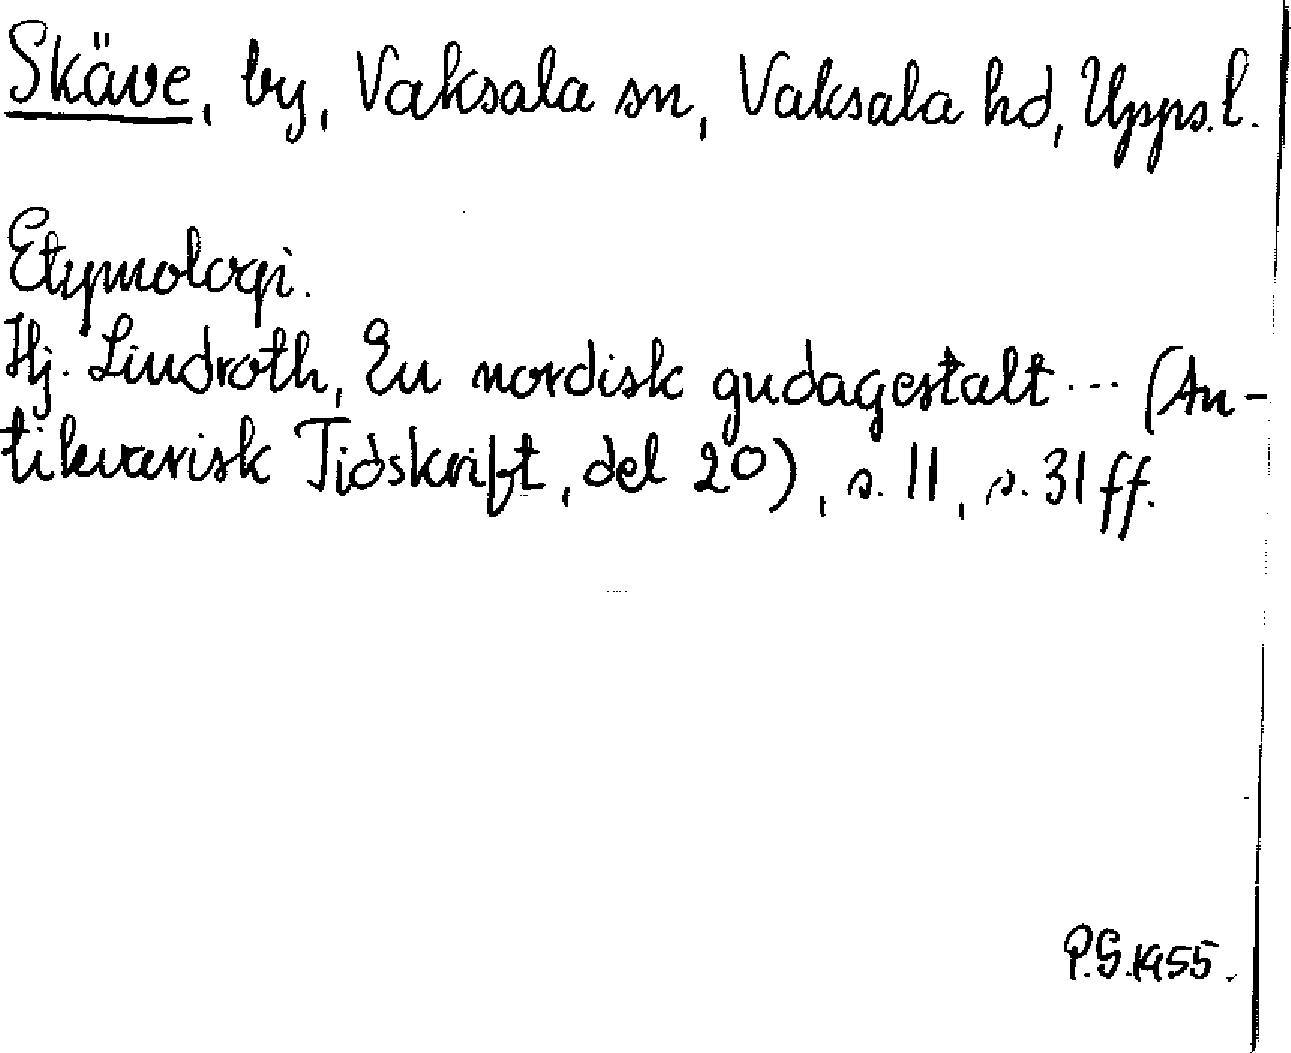 Skäve, by, Vaksala sn, Vaksala hd, Upps. l.
Etymologi.
Hj. Lindroth, En nordisk gudagestalt ... (An-
tikvarisk Tidskrift, del 20), s. 11, s. 31 ff.
P.G. 1955.